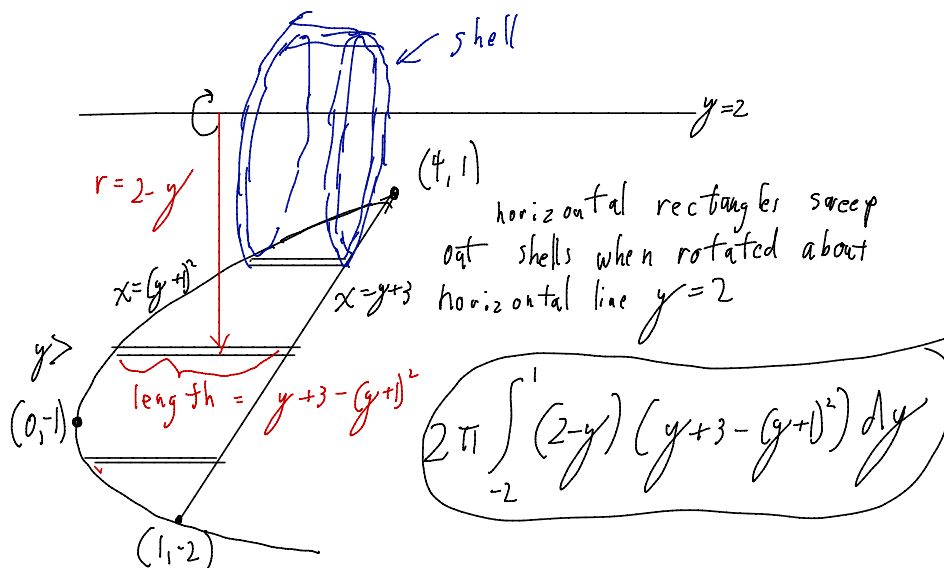 shell
y=2
r=2-y
(4,1)
horizontal rectangles sweep
out shells when rotated about
horizontal line y=2
x=(y+1)²
x=y+3
y>
length = y+3-(y+1)²
(0,-1)
2π∫₋₂¹ (2-y)(y+3-(y+1)²) dy
(1,-2)